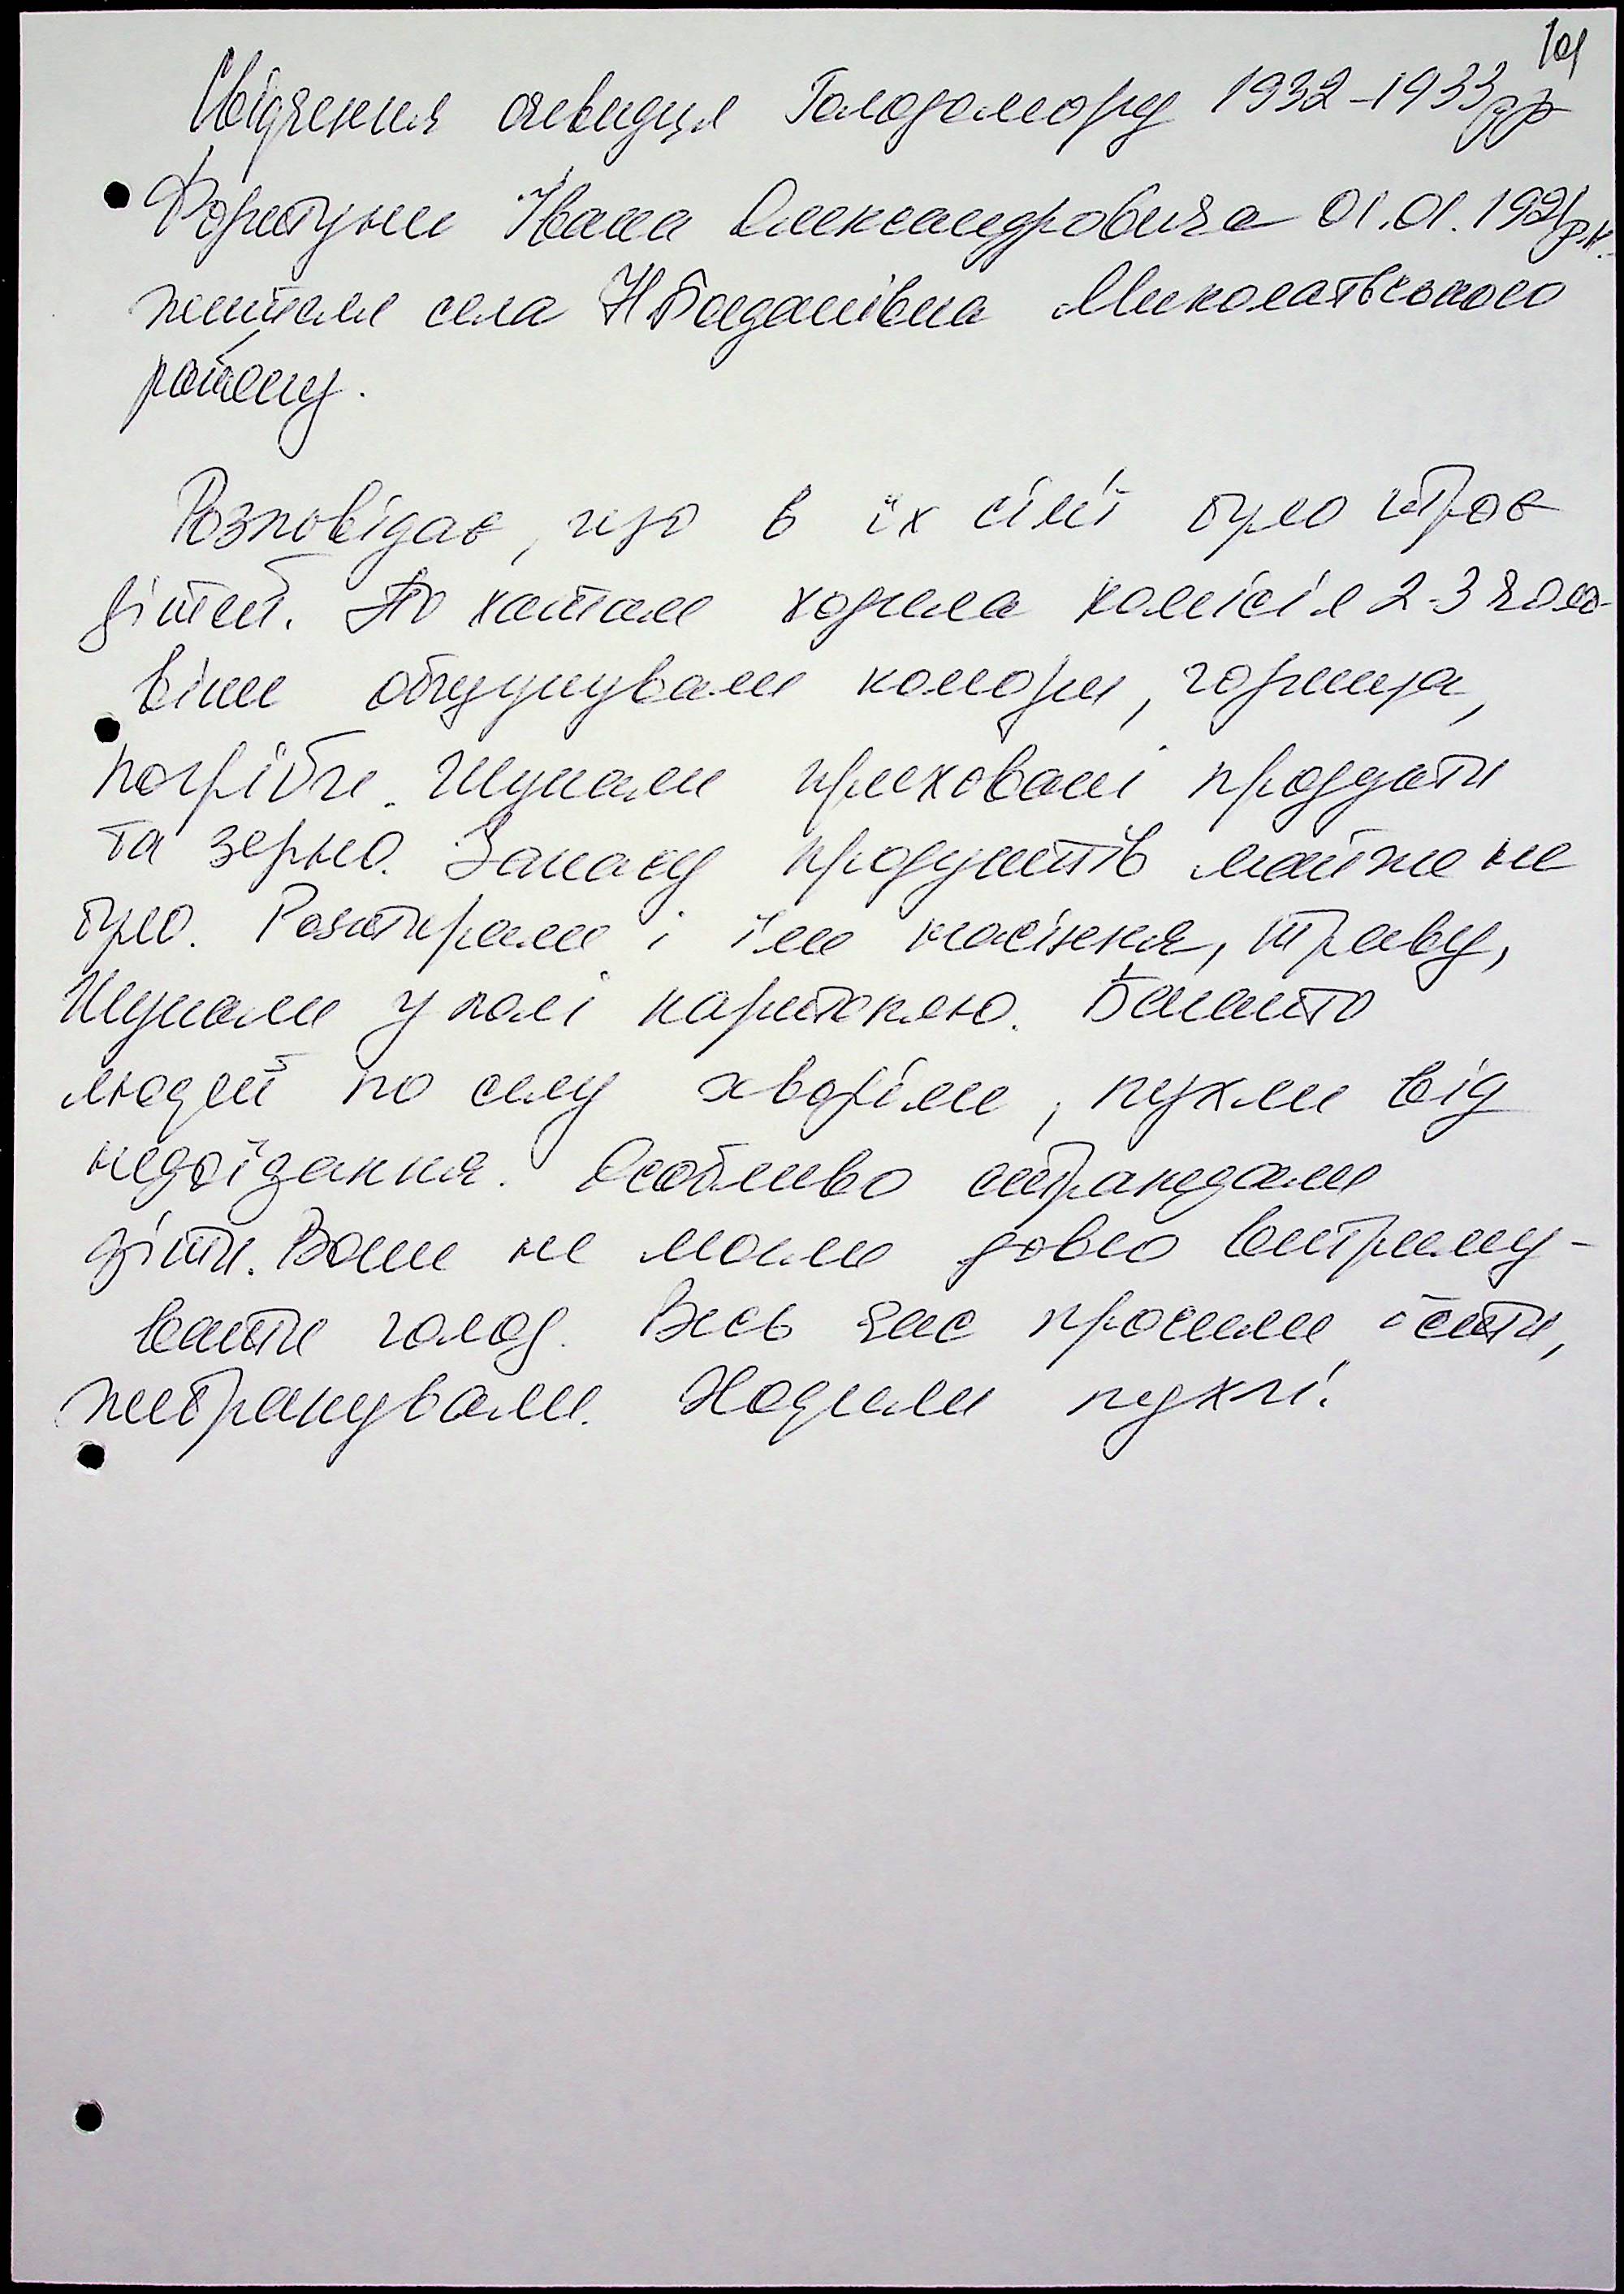 101
Свідчення очевидця Голодомору 1932-1933рр
Фортуни Івана Олександровича 01.01.1921р.н.
жителя села Н Богданівка Миколаївського
району.
Розповідає, що в їх сім'ї було троє
дітей. По хатам ходила комісія 2-3 чоло-
віки обшукували комори, горища,
погріби. Шукали приховані продукти
та зерно. Запасу продуктів майже не
було. Розтирали і їли насіння, траву,
Шукали у полі картоплю. Багато
людей по селу хворіли, пухли від
недоїдання. Особливо страждали
діти. Вони не могли довго витриму-
вати голод. Весь час просили їсти,
жебракували. Ходили пухлі.